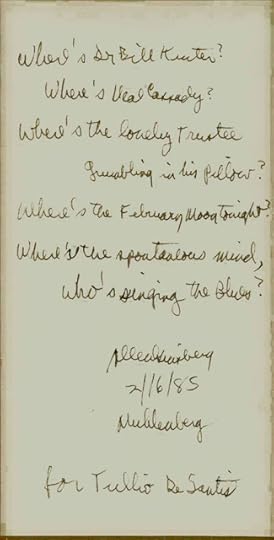 Where's Dr Bill Kinter?
Where's Neal Cassady?
Where's the lonely Trustee
Grumbling in his Pillow?
Where's the February Moon tonight?
Where's the spontaneous mind,
Who's singing the Blues?
Allen Ginsberg
2/16/85
Muhlenberg
for Tullio De Santis